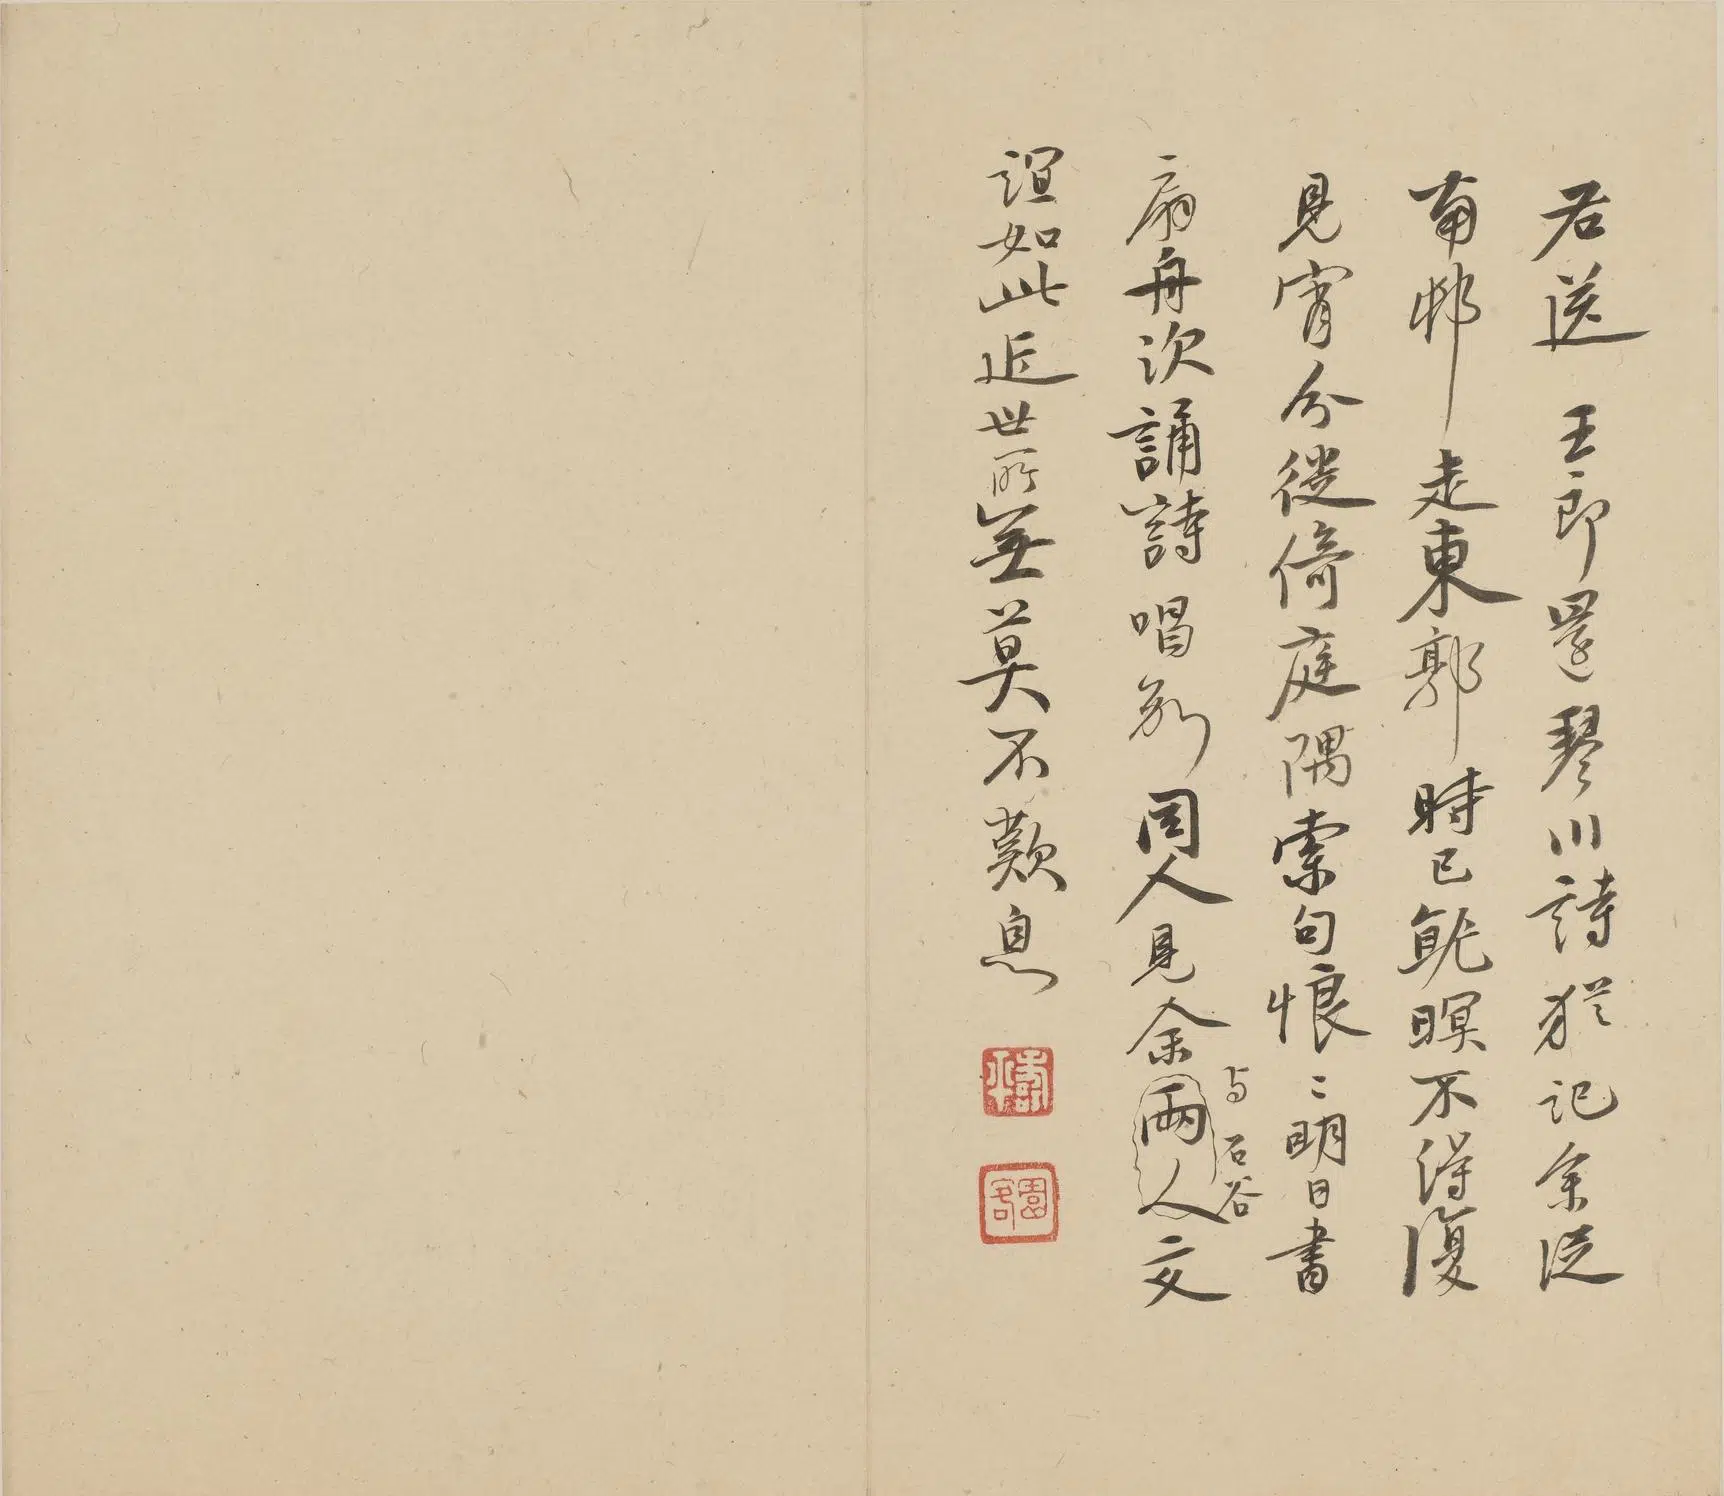 君送 王郎還琴川詩猶記余從
南邨走東郭時已就暝不得復
見宵分徙倚庭隅索句悵〻明日書
扇舟次誦詩唱別同人見余兩人交
与石谷
誼如此近世所無莫不歎息
園客